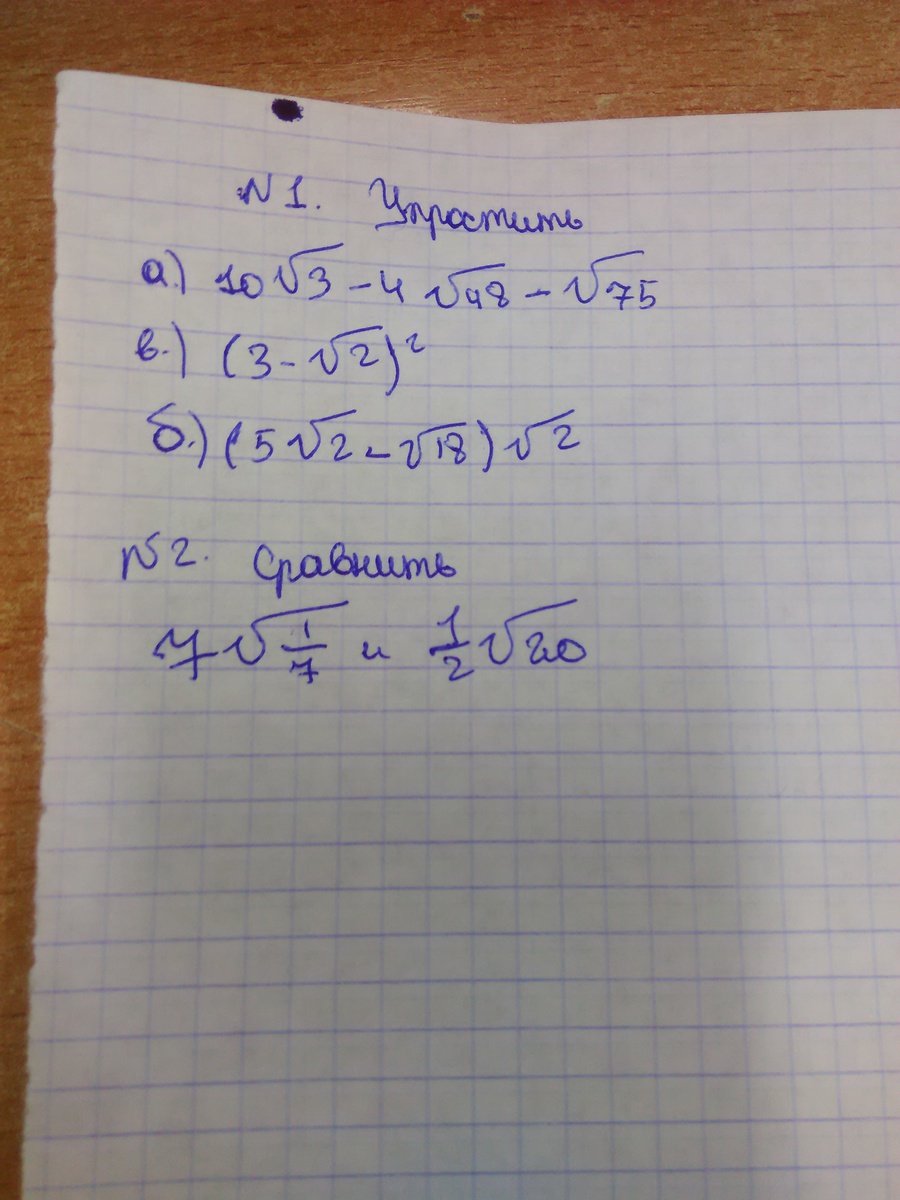 N1. Упростить
а.) 10√3 - 4√48 - √75
в.) (3 - √2)²
б.) (5√2 - √18)√2
N2. Сравнить
7√1/7 и 1/2√20